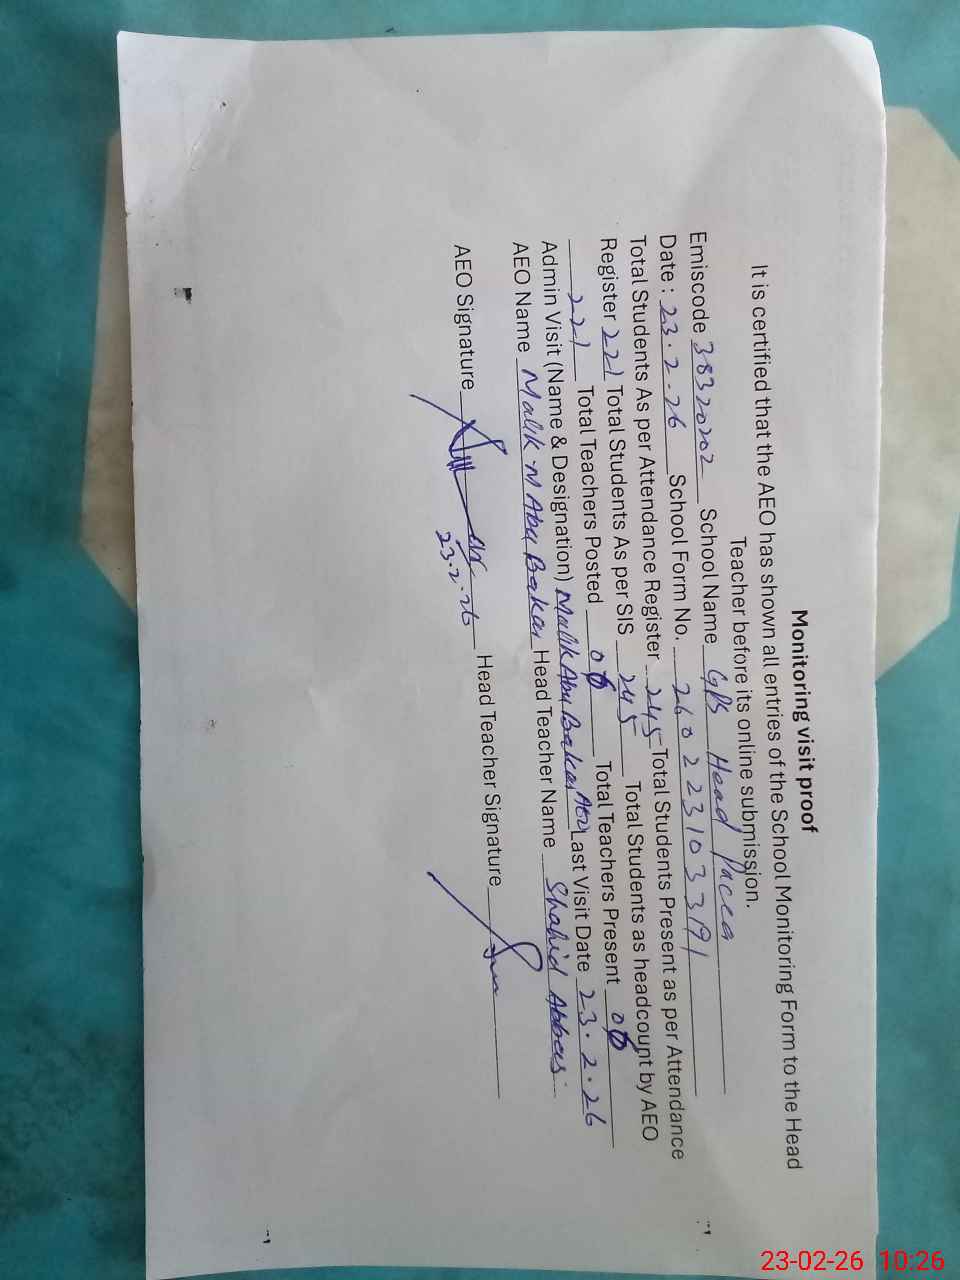 Monitoring visit proof
It is certified that the AEO has shown all entries of the School Monitoring Form to the Head
Teacher before its online submission.
Emiscode 38320202 School Name GPS Head Pacca
Date : 23.2.26 School Form No. 260223103391
Total Students As per Attendance Register 245 Total Students Present as per Attendance
Register 221 Total Students As per SIS 245 Total Students as headcount by AEO
221 Total Teachers Posted Total Teachers Present
Admin Visit (Name & Designation) Malik Abu Bakar AEO Last Visit Date 23.2.26
AEO Name Malik M Abu Bakar Head Teacher Name Shahid Abbas
AEO Signature 23.2.26 Head Teacher Signature
23-02-26 10:26